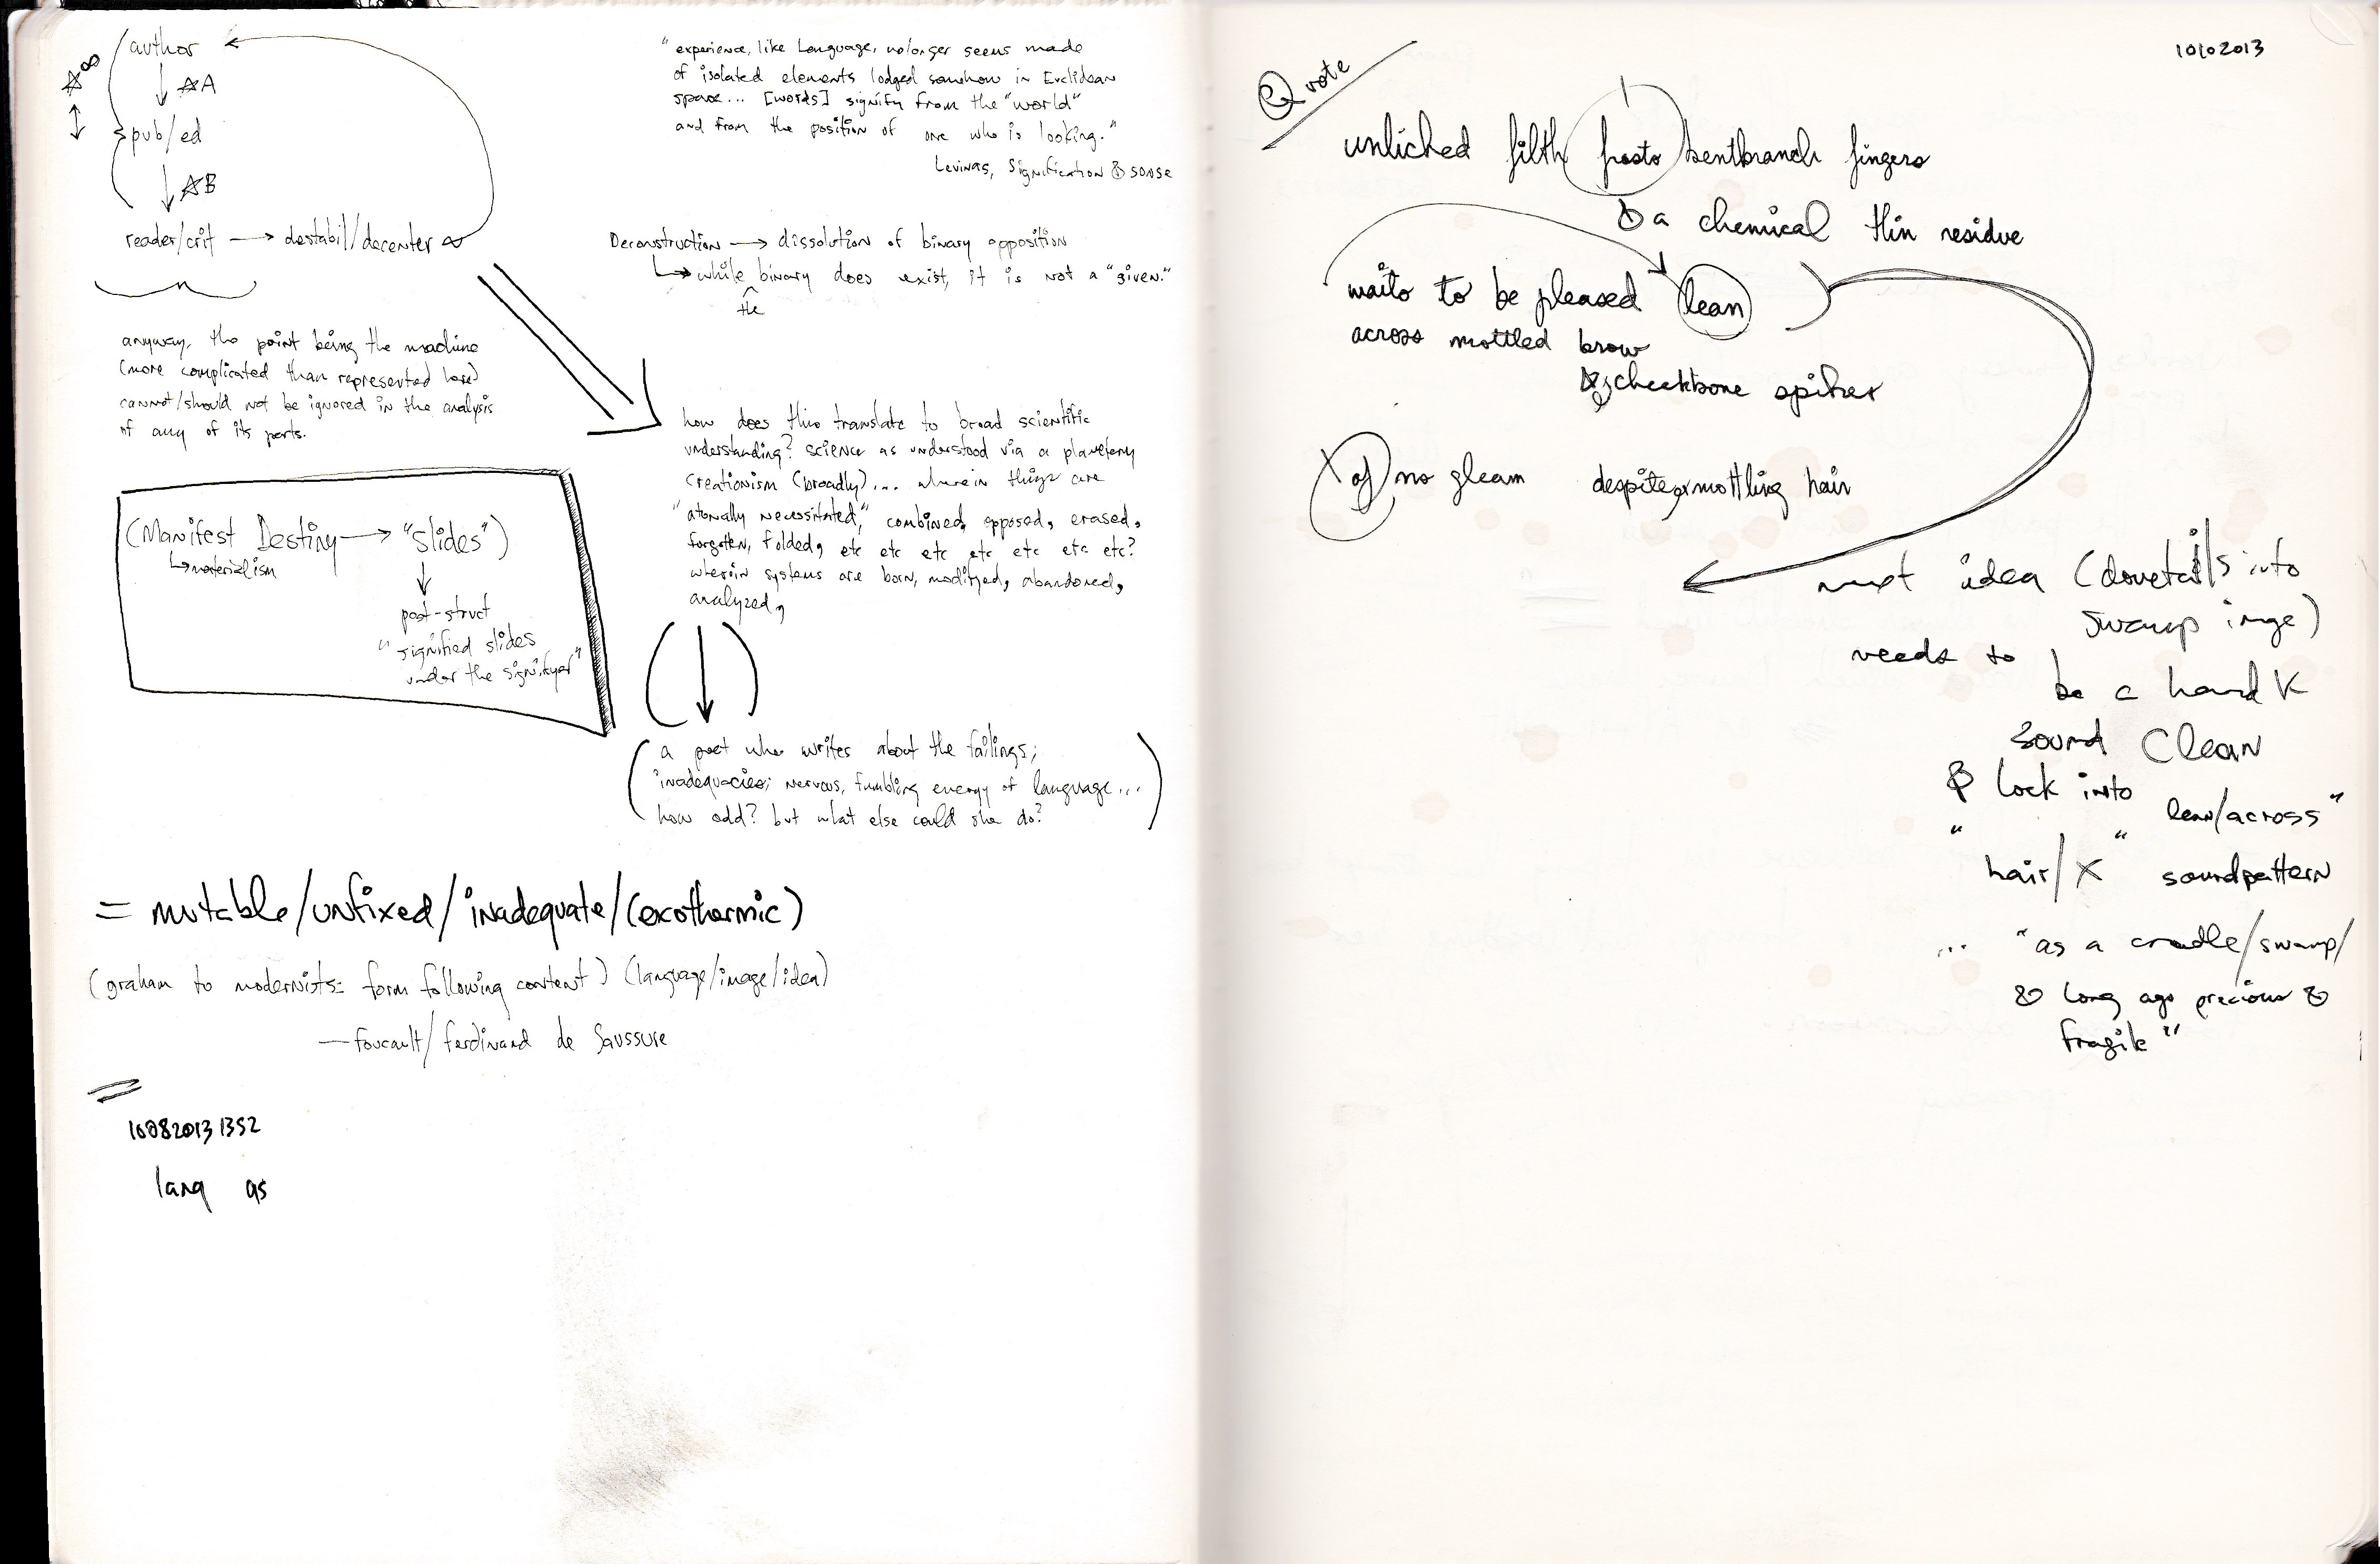 author
☆∞
☆A
pub/ed
☆B
reader/crit → destabil/decenter
anyway, the point being the machine
(more complicated than represented here)
cannot/should not be ignored in the analysis
of any of its parts.
"experience, like language, no longer seems made
of isolated elements lodged somehow in Euclidean
space... [words] signify from the "world"
and from the position of one who is looking."
Levinas, Signification & sense
Deconstruction → dissolution of binary opposition
↳ while binary does exist, it is not a "given."
the
how does this translate to broad scientific
understanding? science as understood via a planetary
creationism (broadly)... wherein things are
"atonally necessitated," combined, opposed, erased,
forgotten, folded, etc etc etc etc etc etc etc?
wherein systems are born, modified, abandoned,
analyzed,
(Manifest Destiny → "slides")
↳ materialism
post-struct
"signified slides
under the signifyer"
(a poet who writes about the failings;
inadequacies; nervous, fumbling energy of language...
how odd? but what else could she do?)
= mutable/unfixed/inadequate/(exothermic)
(graham to modernists= form following content) (language/image/idea)
— foucault/ferdinand de Saussure
100820131352
lang as
10102013
Quote
unlicked filth bentbranch fingers
& a chemical thin residue
waits to be pleased lean
across mottled brow
cheekbone spikes
X of no gleam despite mottling hair
next idea (dovetails into
swamp imge)
needs to
be a hard K
sound Clean
& lock into
lean/across"
"hair/X" soundpattern
... "as a cradle/swamp/
& long ago precious &
fragile"